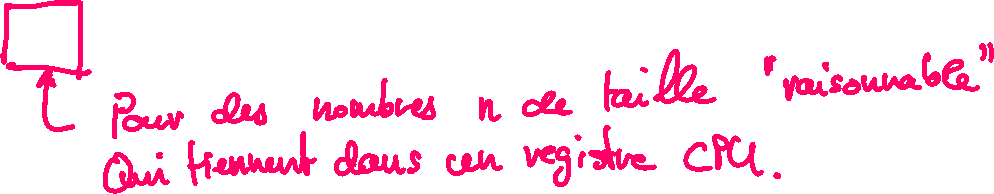 Pour des nombres n de taille "raisonnable"
Qui tiennent dans un registre CPU.